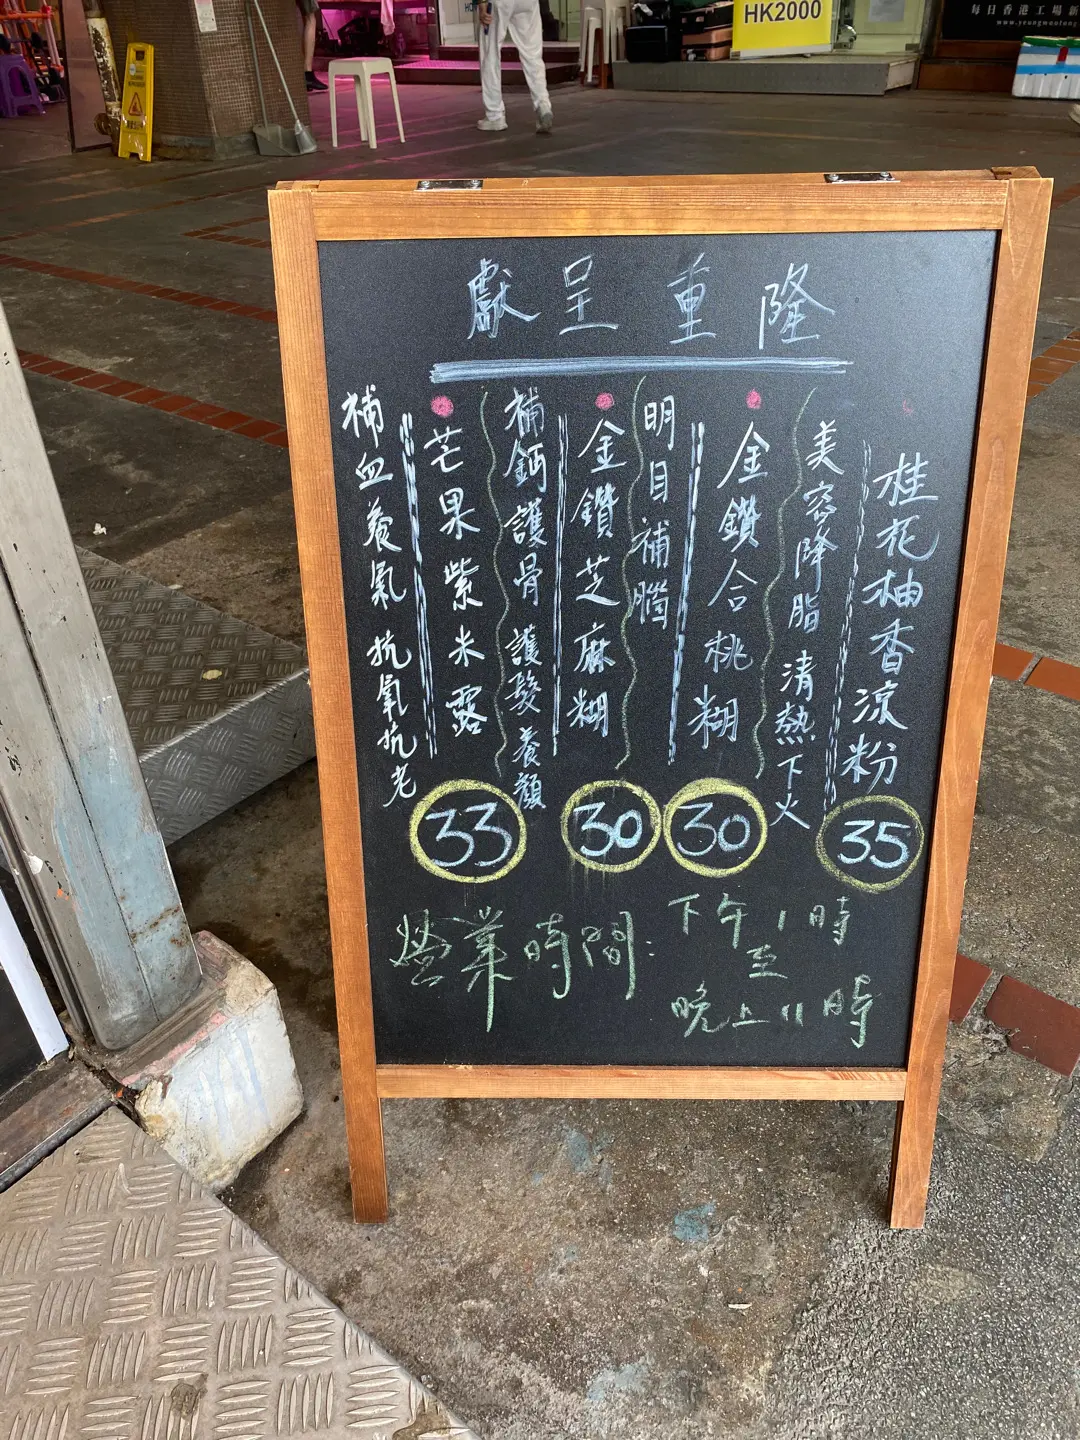 HK2000
每日香港工場新
隆重呈獻
桂花柚香涼粉
35
美容降脂 清熱下火
金鑽合桃糊
30
明目補腦
金鑽芝麻糊
30
補鈣護骨 護髮養顏
芒果紫米露
33
補血養氣 抗氧抗老
營業時間:
下午1時
至
晚上11時